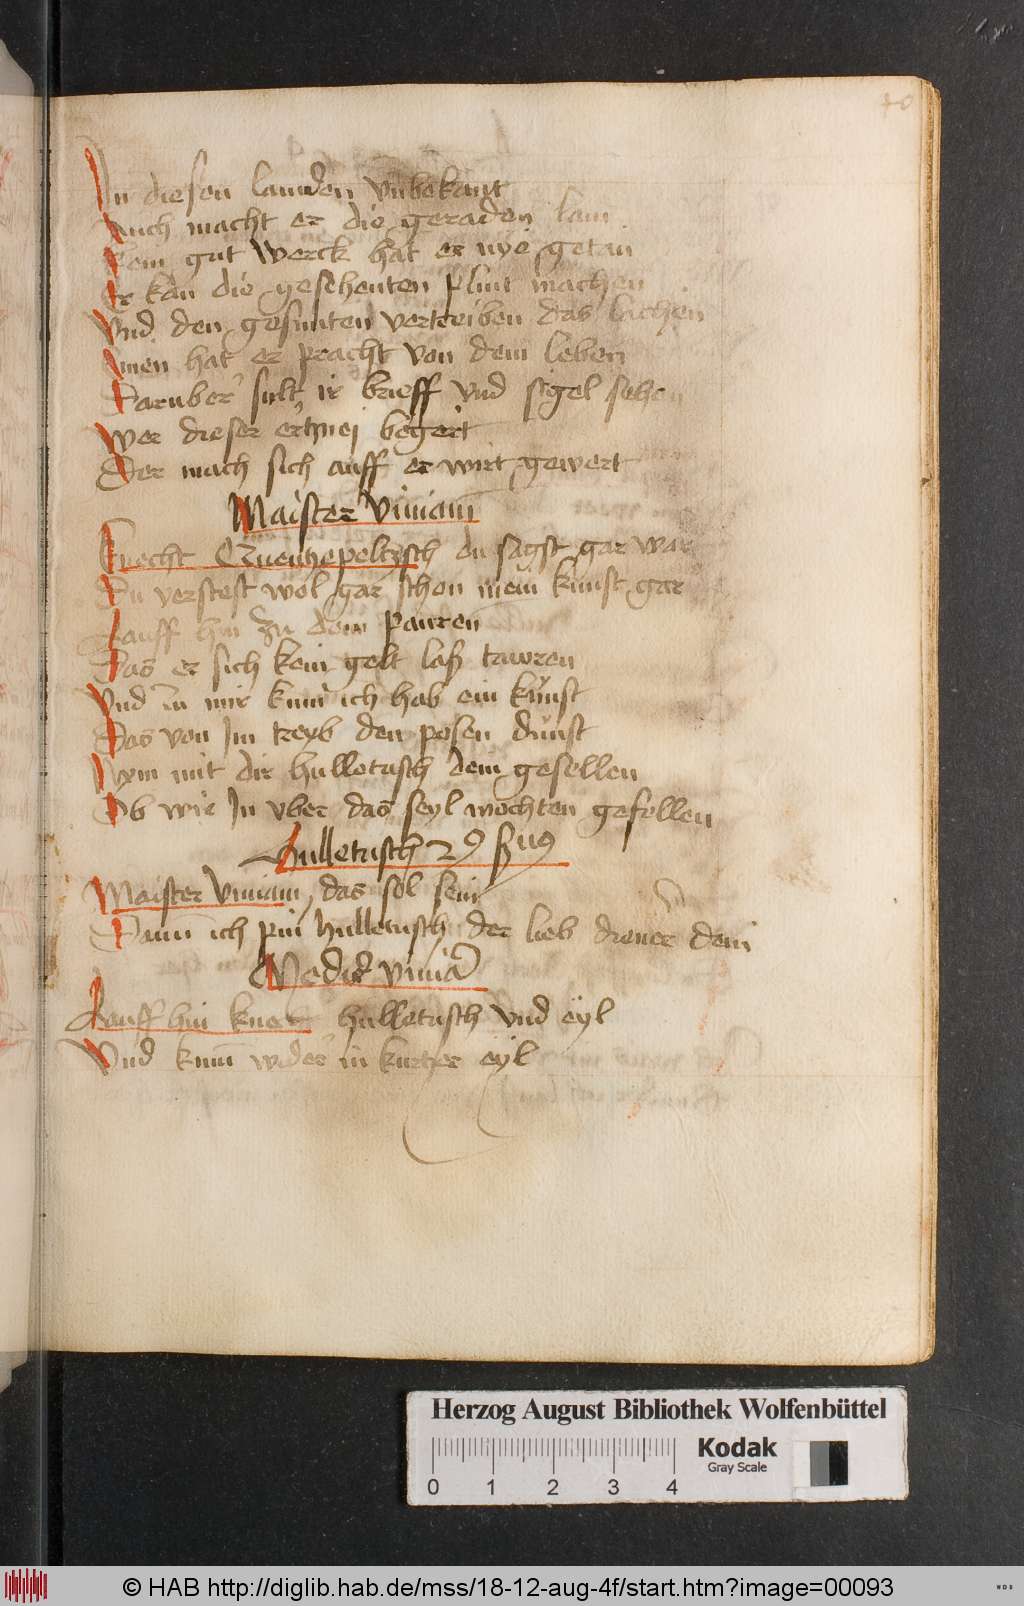 40
In diesen lannden vnbekant
Auch macht er die geraden lam
Kein gut werck hat er nye getan
Er kan die gesehenten plint machen
Vnd den gesunten vertreiben das lachen
hat er pracht von dem leben
Daruber sult ir brieff vnd sigel sehen
Wer dieser ertznej begert
Der mach sich auff er wirt gewert
Maister viuiam
Knecht Quentzepeltzsch du sagst gar war
Du verstest wol gar schon mein kunst gar
Lauff hin zu dem pauren
Das er sich kein gelt laß tawren
Vnd zu mir kum ich hab ein kunst
Das von Im treyb den posen dunst
Nym mit dir hulletusch dem gesellen
Ob wir In vber das seyl mochten gefellen
Hulletusch
Maister viuiam das sol sein
Dann ich pin hulletusch der lieb diener dein
Medicus viuia
Lauff hin knecht hulletusch vnd eyl
Vnd kum wider in kurtzer eyl
Herzog August Bibliothek Wolfenbüttel
Kodak
Gray Scale
0 1 2 3 4
© HAB http://diglib.hab.de/mss/18-12-aug-4f/start.htm?image=00093